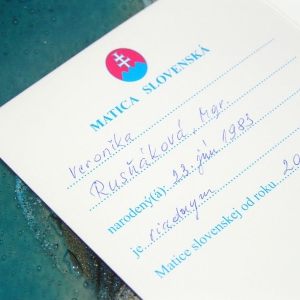 MATICA SLOVENSKÁ
Veronika
Rusňáková, Mgr.
narodený(á) 23. júl 1983
je riadnym
Matice slovenskej od roku 20